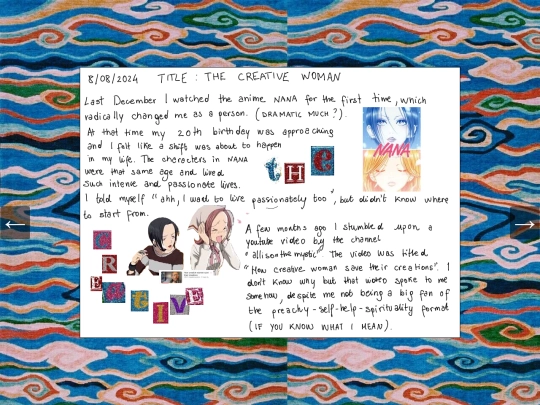 8/08/2024 TITLE : THE CREATIVE WOMAN
Last December I watched the anime NANA for the first time, which
radically changed me as a person. (DRAMATIC MUCH?).
At that time my 20th birthday was approaching
and I felt like a shift was about to happen
in my life. The characters in NANA
were that same age and lived
such intense and passionate lives.
I told myself "ahh, I want to live passionately too", but didn't know where
to start from.
NANA
tHE
CREATIVE
A few months ago I stumbled upon a
youtube video by the channel
"allisonthemystic". The video was titled
"How creative woman save their creations". I
don't know why but that video spoke to me
somehow, despite me not being a big fan of
the preachy-self-help-spirituality format
(IF YOU KNOW WHAT I MEAN).